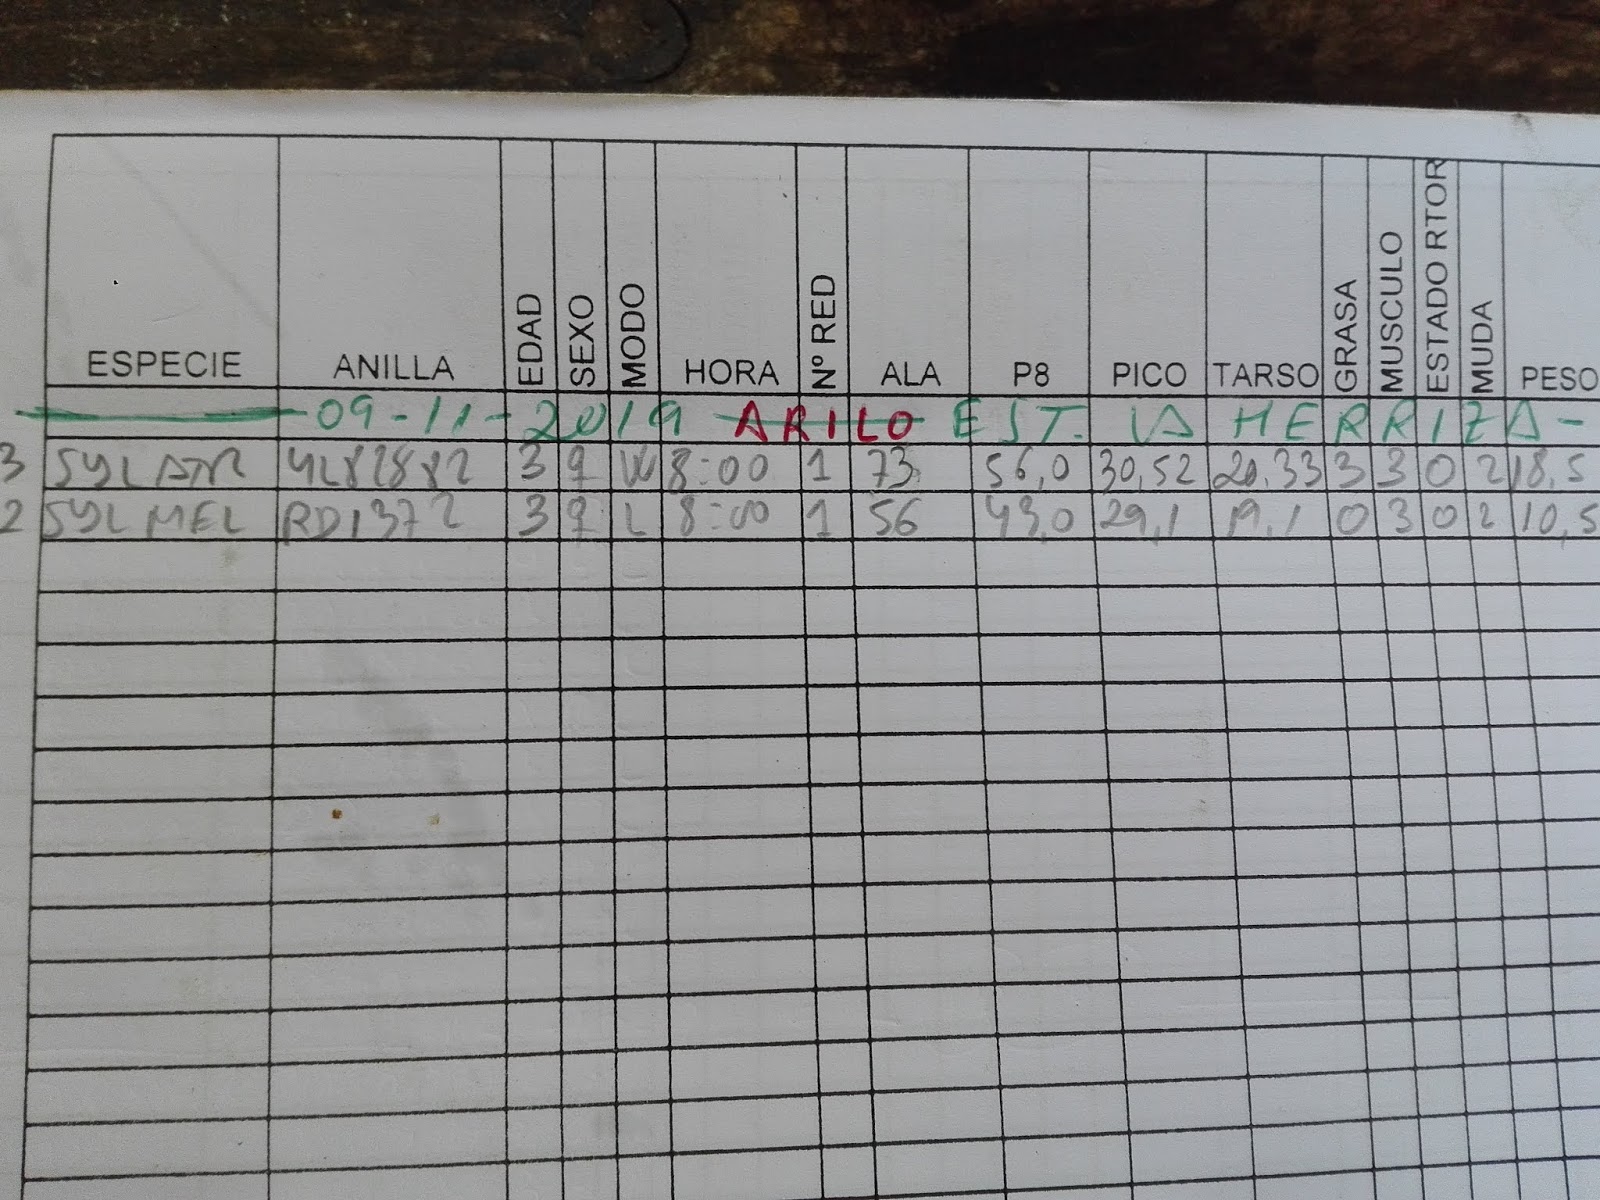 ESPECIE ANILLA EDAD SEXO MODO HORA Nº RED ALA P8 PICO TARSO GRASA MUSCULO ESTADO RTOR MUDA PESO
09-11-2019 ARILO EST. LA HERRIZA-
3 SYLATR 4L82882 3 ♀ W 8:00 1 73 56,0 30,52 20,33 3 3 0 2 18,5
2 SYLMEL RD1372 3 ♀ L 8:00 1 56 43,0 29,1 19,1 0 3 0 2 10,5